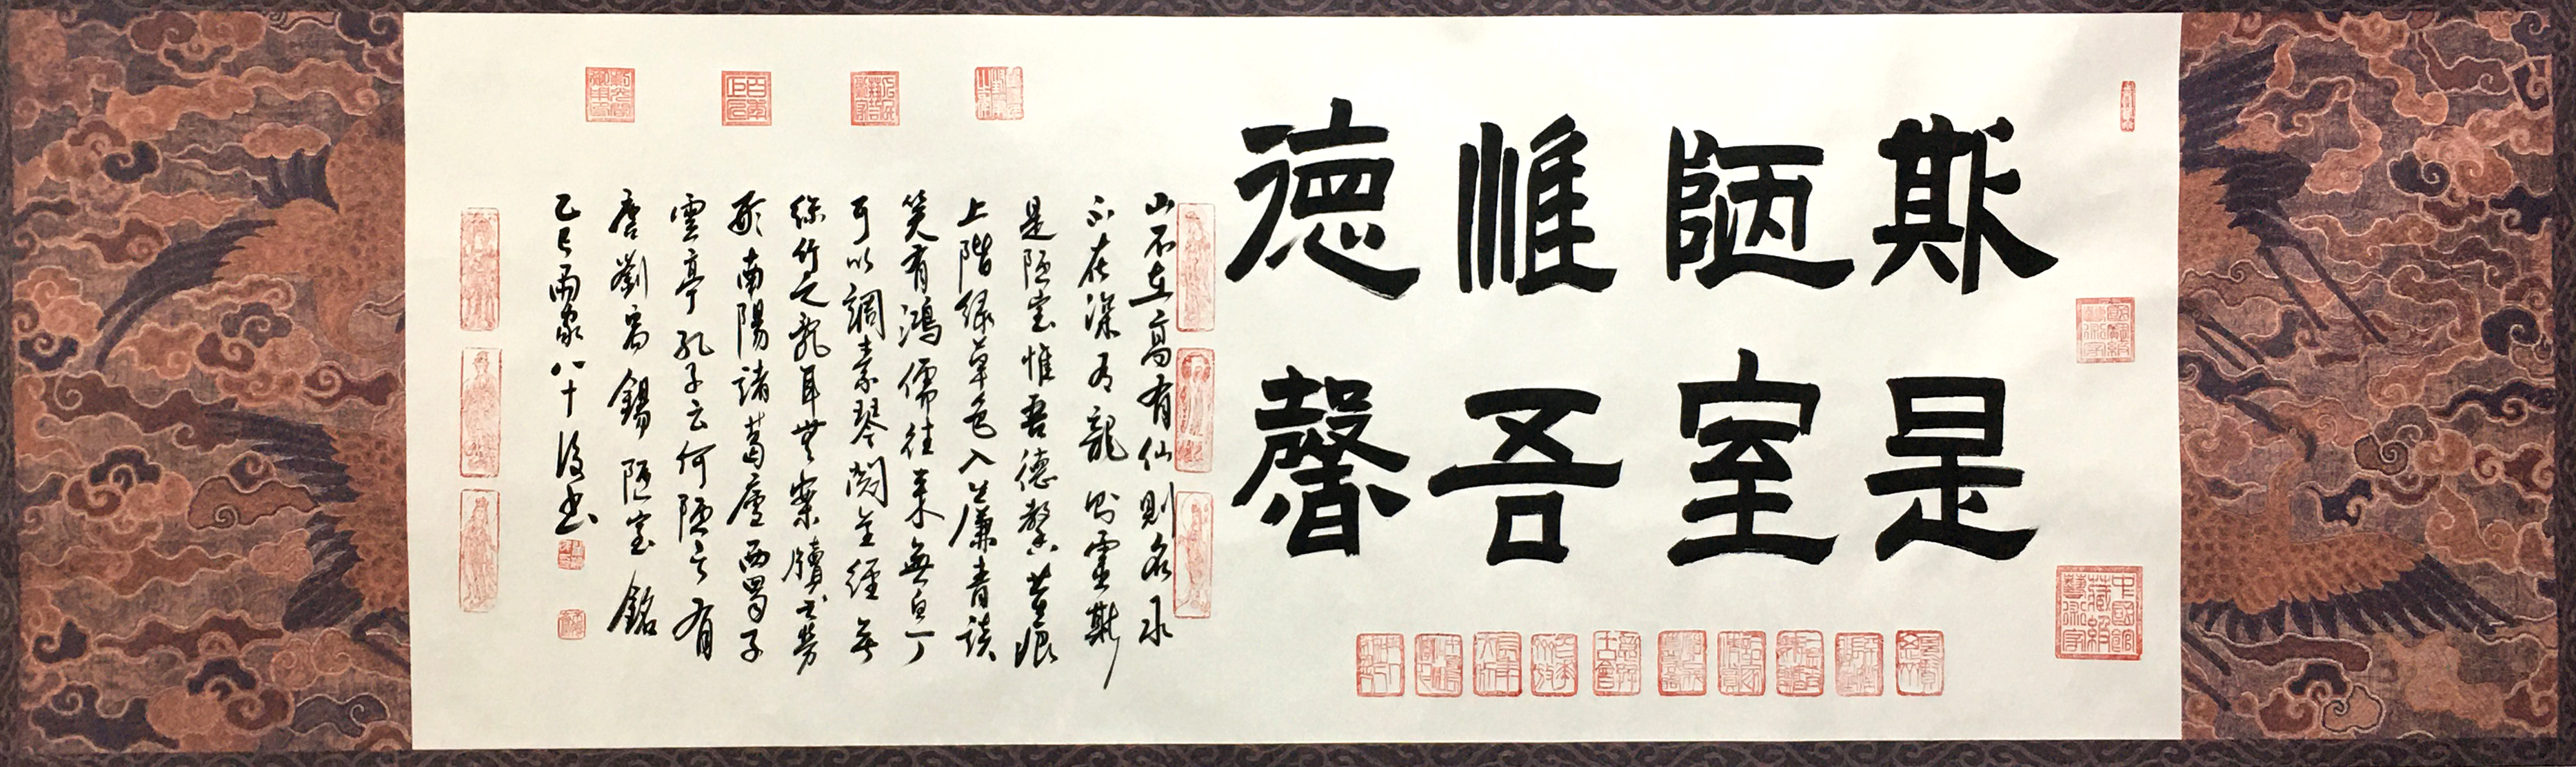 斯是
陋室
惟吾
德馨
山不在高有仙則名水
不在深有龍則靈斯
是陋室惟吾德馨苔痕
上階綠草色入簾青談
笑有鴻儒往來無白丁
可以調素琴閱金經無
絲竹之亂耳無案牘之勞
形南陽諸葛廬西蜀子
雲亭孔子云何陋之有
唐劉禹錫陋室銘
乙巳雨家八十後書
中國館
藏級
藝術家